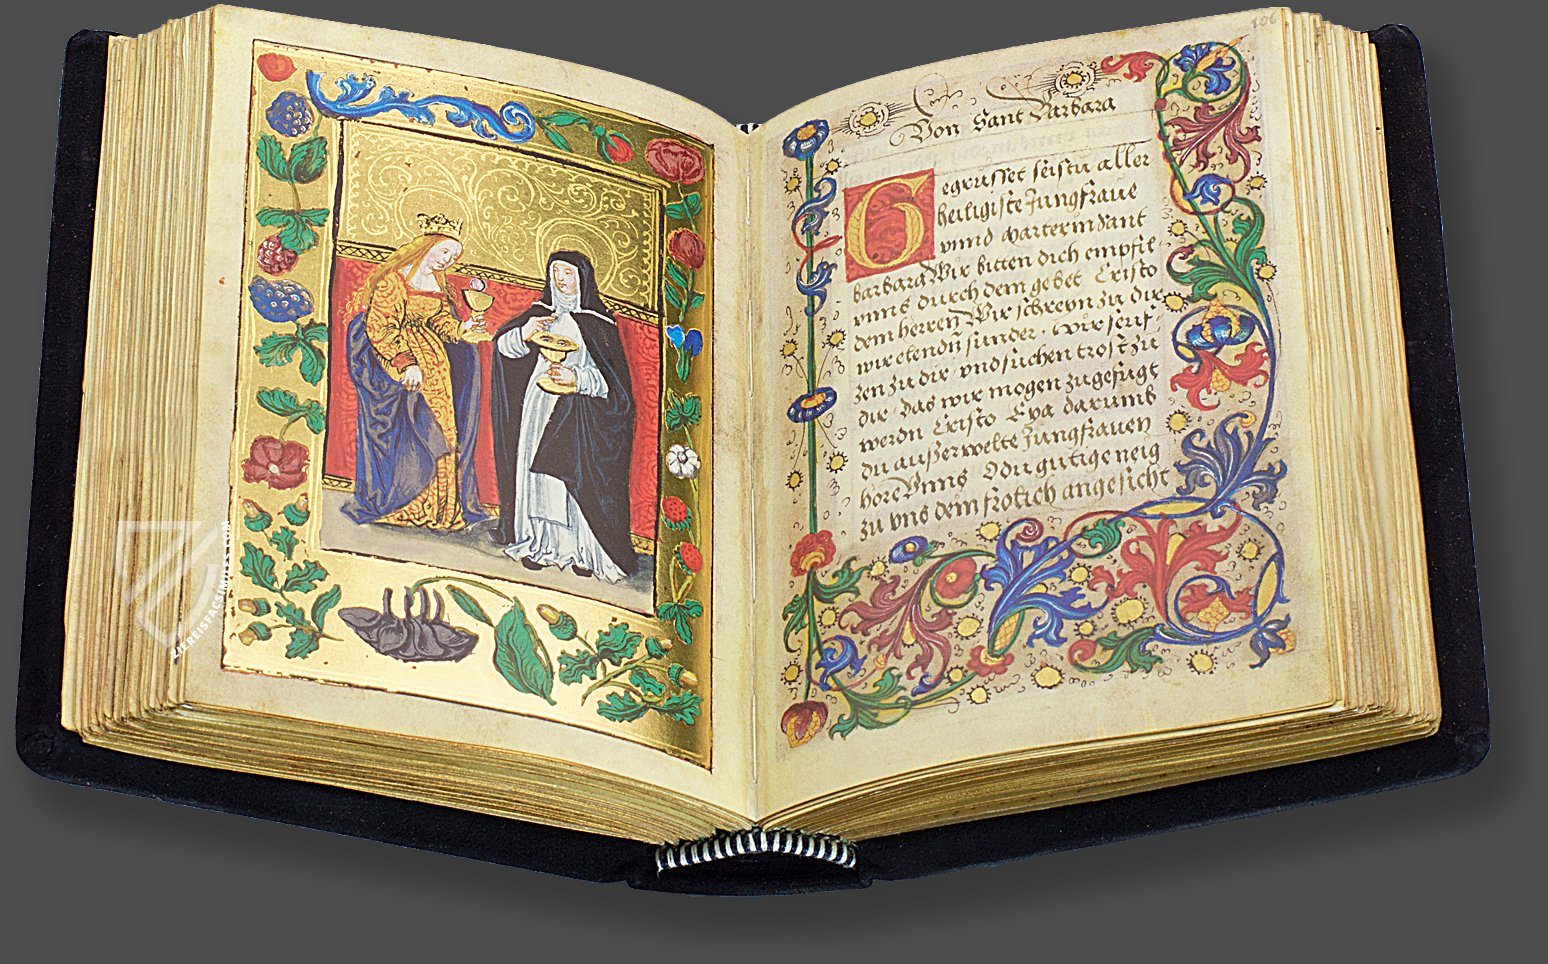 106
Von Sant Barbara
Gegrusset seistu aller
heiligiste Jungfraue
vnnd Marterin Sant
barbara Wir bitten dich empfil
vnns durch dem gebet Cristo
dem herren Wir schreyn zu dir
wir elendn sunder. wir seuf-
zen zu dir vnd suchen trost zu
dir das wir mogen zugefugt
werdn Cristo Eya darumb
du außerwelte Jungfrauen
hore Vnns Vnd gutige neig
zu vns dein frolich angesicht
ZIEREISFACSIMILES.COM